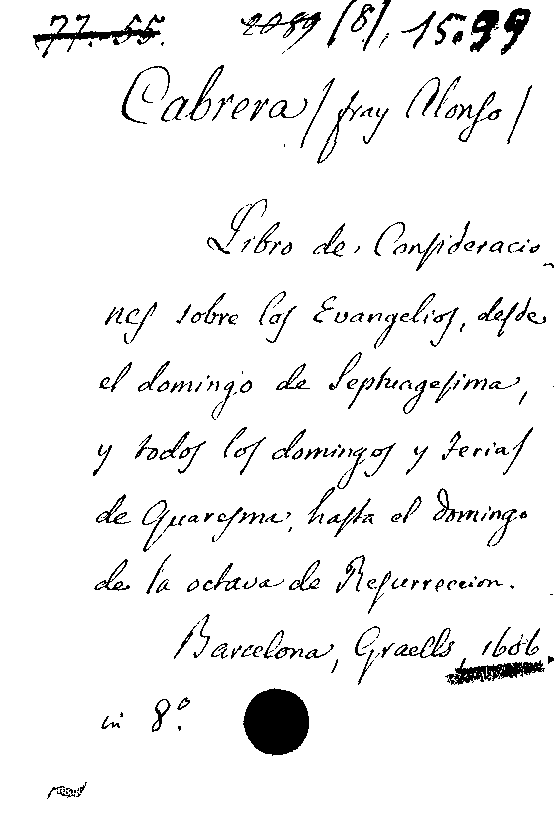 77. 55. 2089 (8), 15.99
Cabrera (fray Alonso)
Libro de Consideracio_
nes sobre los Evangelios, desde
el domingo de Septuagesima,
y todos los domingos y ferias
de Quaresma, hasta el domingo
de la octava de Resurreccion.
Barcelona, Graells, 1606.
in 8º